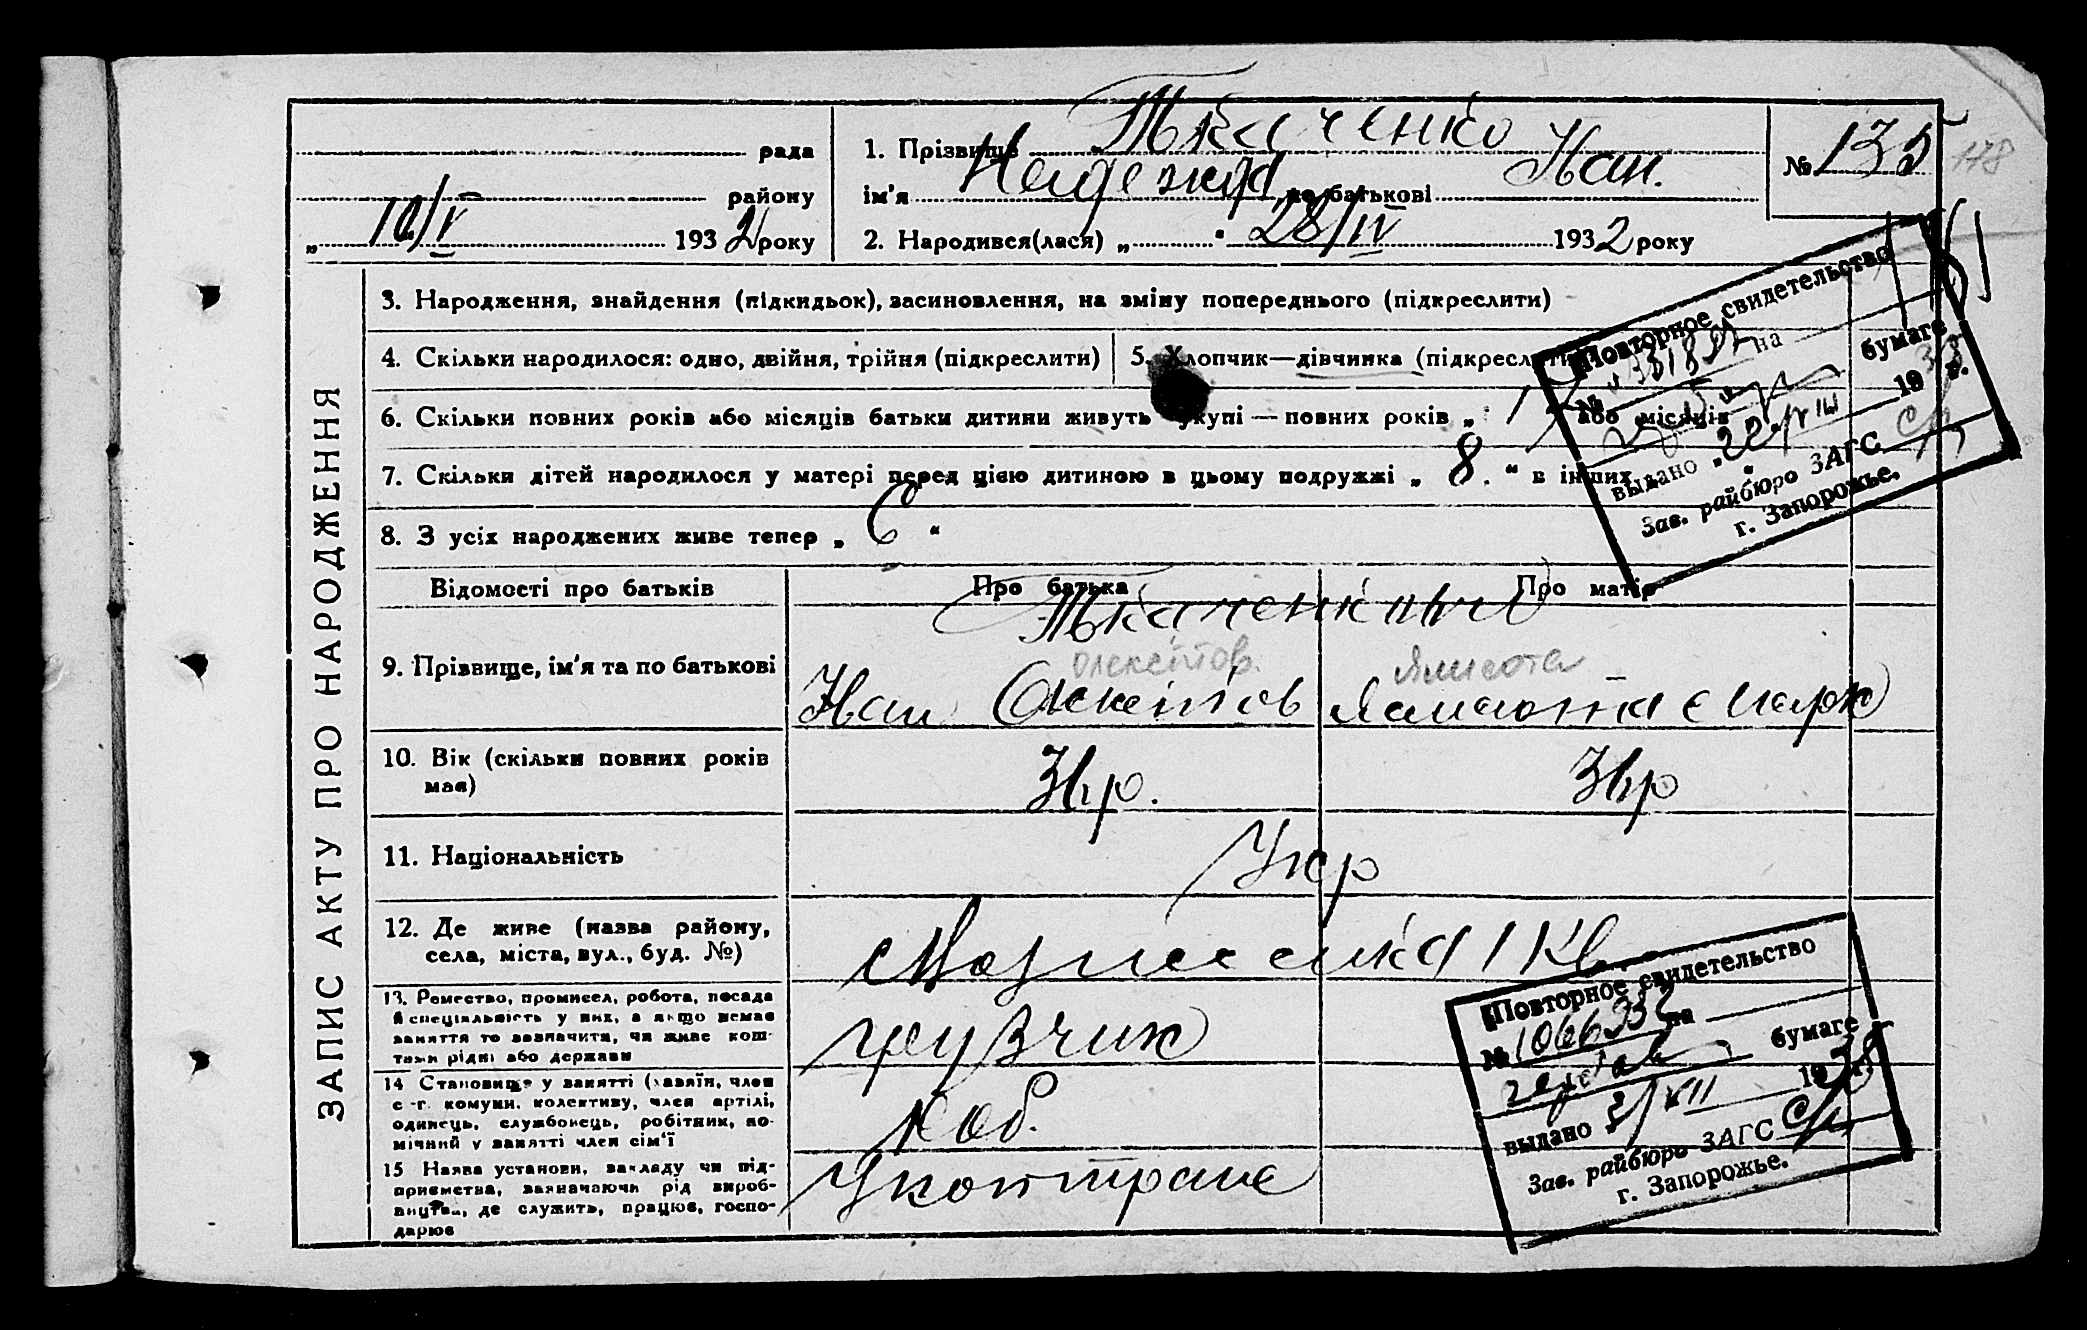 рада
району
10/V 1932 року
1. Прізвище Ткаченко
ім'я Надежда по батькові Иван.
2. Народився(лася) „ " 28/IV 1932 року
№ 135
178
ЗАПИС АКТУ ПРО НАРОДЖЕННЯ
3. Народження, знайдення (підкидьок), засиновлення, на зміну попереднього (підкреслити)
4. Скільки народилося: одно, двійня, трійня (підкреслити)
5. Хлопчик—дівчинка (підкреслити)
6. Скільки повних років або місяців батьки дитини живуть укупі — повних років „ або місяців
7. Скільки дітей народилося у матері перед цією дитиною в цьому подружжі „ 8. " в інших
8. З усіх народжених живе тепер „ 6 "
Повторное свидетельство
№ на
бумаге
выдано 193 г.
Зав. райбюро ЗАГС
г. Запорожье.
Відомості про батьків
Про батька
Про матір
9. Прізвище, ім'я та по батькові
10. Вік (скільки повних років має)
11. Національність
Укр
12. Де живе (назва району,
села, міста, вул., буд. №)
13. Ремество, промисел, робота, посада
й спеціяльність у них, а якщо немає
заняття то зазначити, чи живе кош-
тами рідні або держави
грузчик
14 Становище у занятті (хазяїн, член
с.-г. комуни, колективу, член артілі,
одинець, службовець, робітник, по-
мічний у занятті член сім'ї
Роб.
15 Назва установи, закладу чи під-
приємства, зазначаючи рід вироб-
ництва, де служить, працює, госпо-
дарює
Повторное свидетельство
№ на
бумаге
выдано 1938
Зав. райбюро ЗАГС
г. Запорожье.